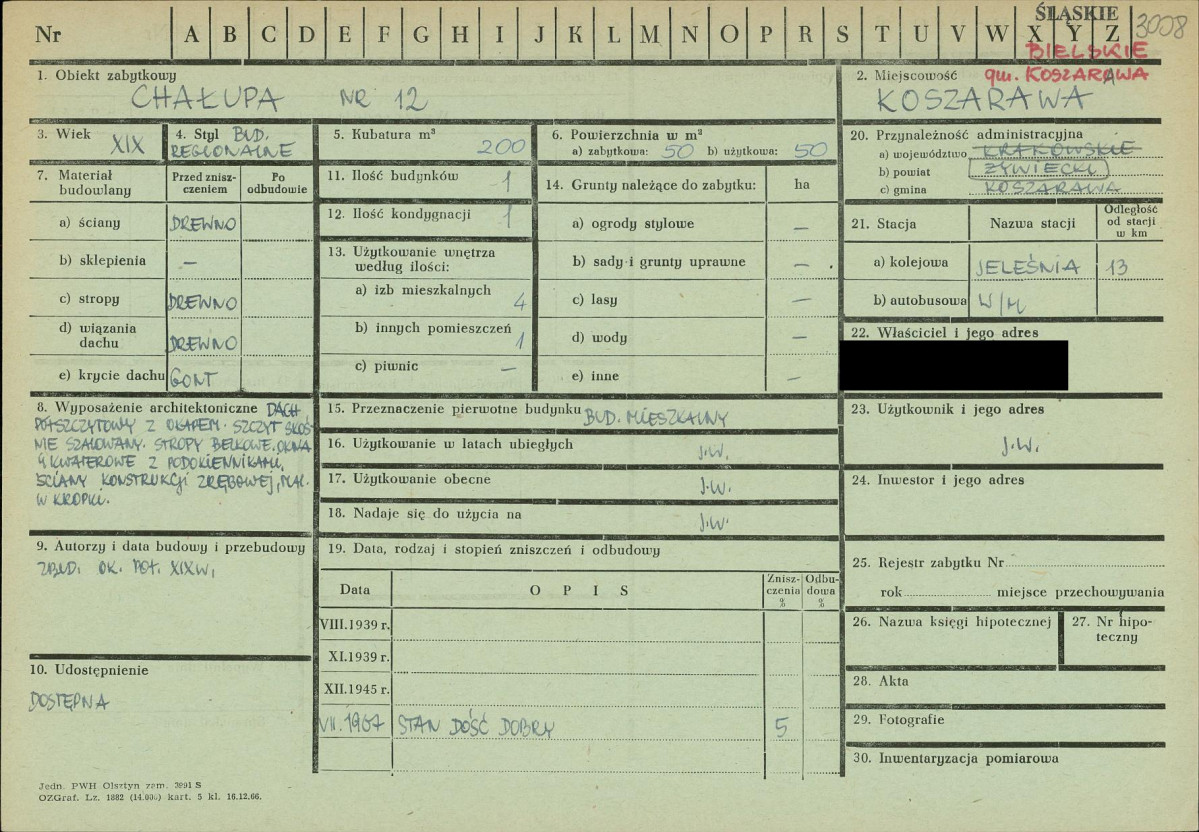 Nr A B C D E F G H I J K L M N O P R S T U V W X Y Z ŚLĄSKIE 3008
BIELSKIE
gm. KOSZARAWA
1. Obiekt zabytkowy
CHAŁUPA NR 12
2. Miejscowość
KOSZARAWA
3. Wiek XIX
4. Styl BUD.
REGIONALNE
5. Kubatura m³
200
6. Powierzchnia w m²
a) zabytkowa: 50 b) użytkowa: 50
7. Materiał budowlany
Przed zniszczeniem
Po odbudowie
a) ściany DREWNO
b) sklepienia —
c) stropy DREWNO
d) wiązania dachu DREWNO
e) krycie dachu GONT
11. Ilość budynków 1
12. Ilość kondygnacji 1
13. Użytkowanie wnętrza
według ilości:
a) izb mieszkalnych 4
b) innych pomieszczeń 1
c) piwnic —
14. Grunty należące do zabytku: ha
a) ogrody stylowe —
b) sady i grunty uprawne —
c) lasy —
d) wody —
e) inne —
20. Przynależność administracyjna
a) województwo KRAKOWSKIE
b) powiat ŻYWIECKI
c) gmina KOSZARAWA
21. Stacja Nazwa stacji Odległość
od stacji
w km
a) kolejowa JELEŚNIA 13
b) autobusowa W/M
22. Właściciel i jego adres
8. Wyposażenie architektoniczne DACH
PÓŁSZCZYTOWY Z OKAPEM. SZCZYT SKOŚ-
NIE SZALOWANY. STROPY BELKOWE. OKNA
4 KWATEROWE Z PODOKIENNIKAMI,
ŚCIANY KONSTRUKCJI ZRĘBOWEJ, MAL.
W KROPKI.
15. Przeznaczenie pierwotne budynku BUD. MIESZKALNY
16. Użytkowanie w latach ubiegłych J.W.
17. Użytkowanie obecne J.W.
18. Nadaje się do użycia na J.W.
23. Użytkownik i jego adres
J.W.
24. Inwestor i jego adres
9. Autorzy i data budowy i przebudowy
ZBUD. OK. POŁ. XIX W.
10. Udostępnienie
DOSTĘPNA
19. Data, rodzaj i stopień zniszczeń i odbudowy
Data O P I S Znisz-
czenia
% Odbu-
dowa
%
VIII.1939 r.
XI.1939 r.
XII.1945 r.
VII.1967 STAN DOŚĆ DOBRY 5
25. Rejestr zabytku Nr
rok miejsce przechowywania
26. Nazwa księgi hipotecznej
27. Nr hipo-
teczny
28. Akta
29. Fotografie
30. Inwentaryzacja pomiarowa
Jedn. PWH Olsztyn zam. 3991 S
OZGraf. Lz. 1882 (14.000) kart. 5 kl. 16.12.66.